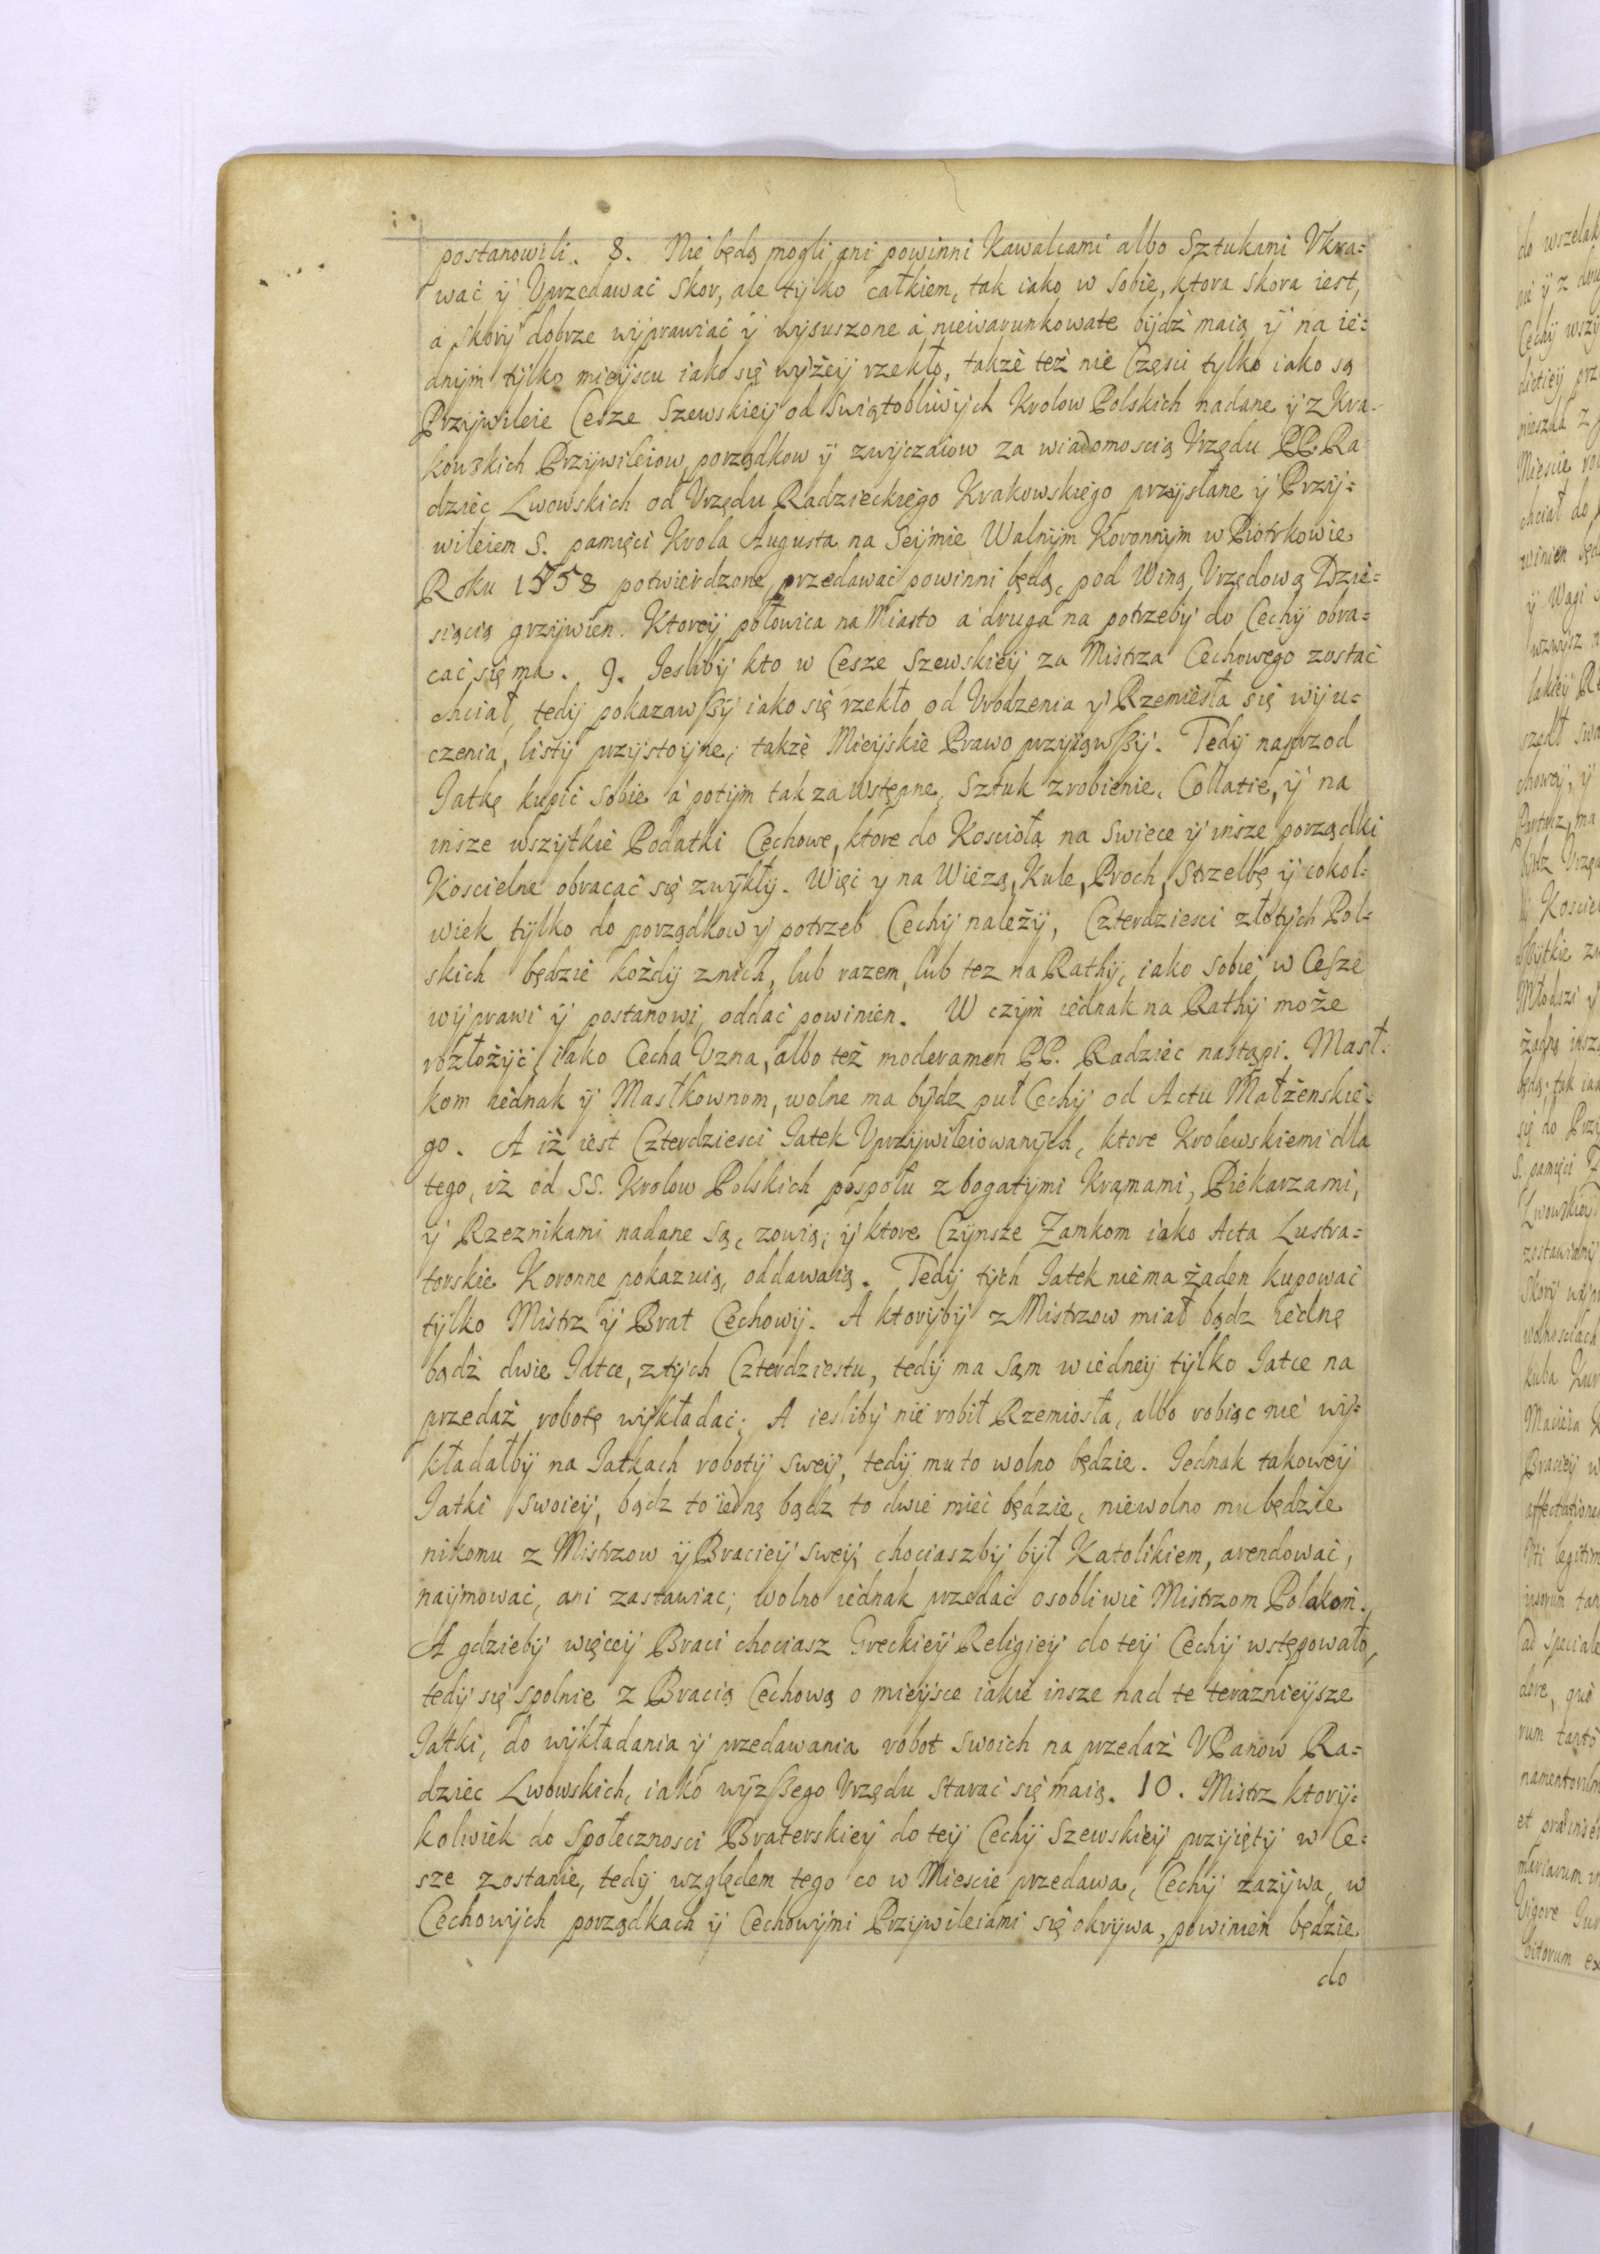 postanowili. 8. Nie będą mogli ani powinni Kawalcami albo Sztukami Vkra=
wać ÿ Vprzedawać Skor, ale tÿlko całkiem, tak iako w sobie, ktora skora iest,
a skorÿ dobrze wÿprawiać ÿ wysuszone a niewarunkowate bÿdź maią ÿ na ie=
dnÿm tÿlko mieÿscu iako się wÿżeÿ rzekło, także też nie Częsci tylko iako są
Przÿwileie Cesze Szewskieÿ od Swiątobliwÿch Krolow Polskich nadane ÿ z Kra=
kowskich Przÿwileiow, porządkow ÿ zwÿczaiow za wiadomoscią Vrzędu PP. Ra
dziec Lwowskich od Vrzędu Radzieckiego Krakowskiego przÿsłane ÿ Przÿ=
wileiem S. pamięci Krola Augusta na Seÿmie Walnÿm Koronnÿm w Piotrkowie
Roku 1558 potwierdzone, przedawać powinni będą, pod Winą Vrzędową Dzie=
siącią grzÿwien. Ktoreÿ połowica na Miasto a druga na potrzebÿ do Cechÿ obra=
cać się ma. 9. Iesliby kto w Cesze Szewskieÿ za Mistrza Cechowego zostać
chciał, tedÿ pokazawszÿ iako się rzekło od Vrodzenia ÿ Rzemiesła się wÿu=
czenia, listÿ przÿstoÿne, także Mieÿskie Prawo przÿiąwszÿ. Tedÿ naprzod
Iatkę kupić sobie a potÿm tak za wstępne, Sztuk zrobienie, Collatie, ÿ na
insze wszÿtkie Podatki Cechowe, ktore do Koscioła na swiece ÿ insze porządki
Koscielne obracać się zwÿkłÿ. Więc y na Wieżą, Kule, Proch, Strzelbę ÿ cokol=
wiek tÿlko do porządkow ÿ potrzeb Cechÿ należÿ, Czterdziesci złotÿch Pol=
skich będzie koźdÿ znich, lub razem, lub tez na Rathÿ, iako sobie w Cesze
wÿprawi ÿ postanowi, oddać powinien. W czÿm iednak na Rathÿ może
rozłożÿć, iako Cecha Vzna, albo też moderamen PP. Radziec nastąpi. Mast=
kom iednak ÿ Mastkownom, wolne ma bÿdz puł Cechÿ od Actu Małżenskie=
go. A iż iest Czterdziesci Iatek Vprzÿwileiowanÿch, ktore Krolewskiemi dla
tego, iż od SS. Krolow Polskich pospołu z bogatÿmi Kramami, Piekarzami,
ÿ Rzeznikami nadane są, zowią, ÿ ktore Czÿnsze Zamkom iako Acta Lustra=
torskie Koronne pokazuią, oddawaią. Tedÿ tÿch Iatek niema żaden kupować
tÿlko Mistrz ÿ Brat Cechowÿ. A ktorÿbÿ z Mistrzow miał bądz iednę
bądź dwie Iatce, ztÿch Czterdziestu, tedÿ ma sąm wiedneÿ tÿlko Iatce na
przedaż robotę wÿkładać. A iesliby nie robił Rzemiosła, albo robiąc nie wÿ=
kładałbÿ na Iatkach robotÿ sweÿ, tedÿ mu to wolno będzie. Iednak takoweÿ
Iatki swoieÿ, bądz to iednę bądz to dwie mieć będzie, niewolno mu będzie
nikomu z Mistrzow ÿ Bracieÿ sweÿ, chociaszbÿ bÿł Katolikiem, arendować,
naÿmować, ani zastawiac; wolno iednak przedać osobliwie Mistrzom Polakom.
A gdziebÿ więceÿ Braci chociasz Greckieÿ Religieÿ do teÿ Cechÿ wstępowało,
tedÿ się spolnie z Bracią Cechową o mieÿsce iakie insze nad te teraznieÿsze
Iatki, do wÿkładania ÿ przedawania robot swoich na przedaż V Panow Ra=
dziec Lwowskich, iako wÿzszego Vrzędu starać się maią. 10. Mistrz ktorÿ=
kolwiek do społecznosci Braterskieÿ do teÿ Cechÿ Szewskieÿ przÿiętÿ w Ce=
sze zostanie, tedÿ względem tego co w Miescie przedawa, Cechÿ zazÿwa, w
Cechowÿch porządkach ÿ Cechowÿmi Przÿwileiami się okrÿwa, powinien będzie
do